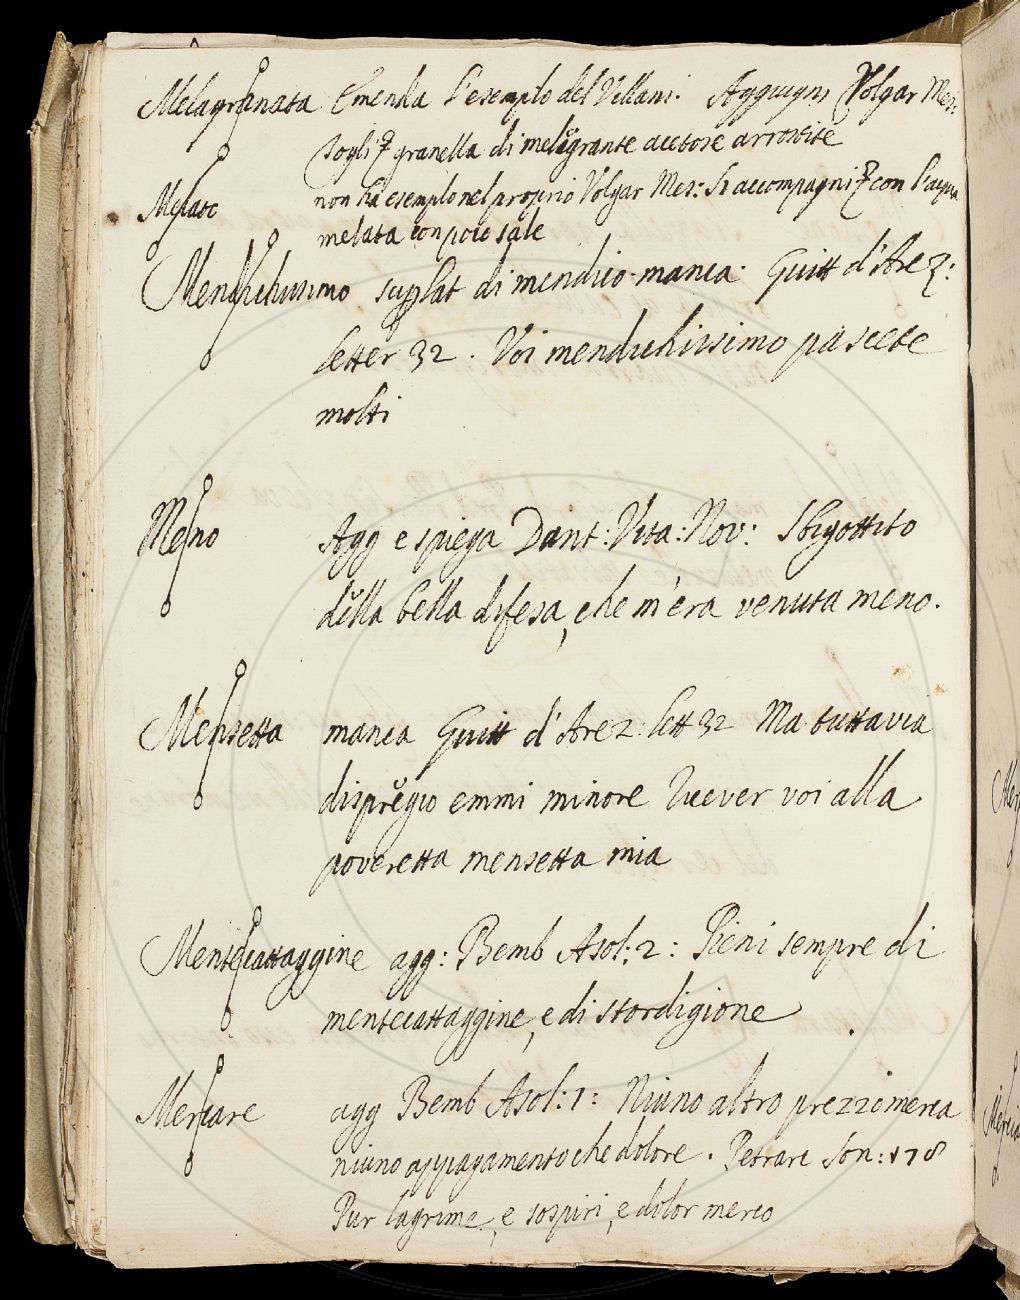 Melagranata Emenda l'esemplo del Villani. Aggiugni Volgar Mes:
togli ꝑ granella di melegrante acetose arrostite
Melato non ha esemplo nel proprio Volgar Mes: Si accompagni ꝑ con l'acqua
melata con poco sale
Mendichissimo suplat di mendico manca. Guitt d'Arez:
letter 32. Voi mendichissimo pascete
molti
Meno Agg e spiega Dant: Vita: Nov: Sbigottito
della bella difesa, che m'era venuta meno.
Mensetta manca Guitt d'Arez lett 32 Ma tuttavia
dispregio emmi minore ricever voi alla
poveretta mensetta mia
Mentecattaggine agg: Bemb Asol: 2: Pieni sempre di
mentecattaggine, e di stordigione
Mercare agg Bemb Asol: 1: Niuno altro prezzo merca
niuno appagamento che dolore. Petrarc Son: 178
Pur lagrime, e sospiri, e dolor merco